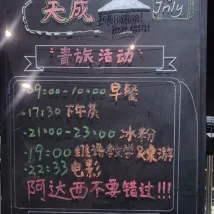 天成
July
青旅活动
09:00-10:00早餐
17:30下午茶
21:00-23:00冰粉
19:00维语教学&桌游
22:33电影
阿达西不要错过!!!